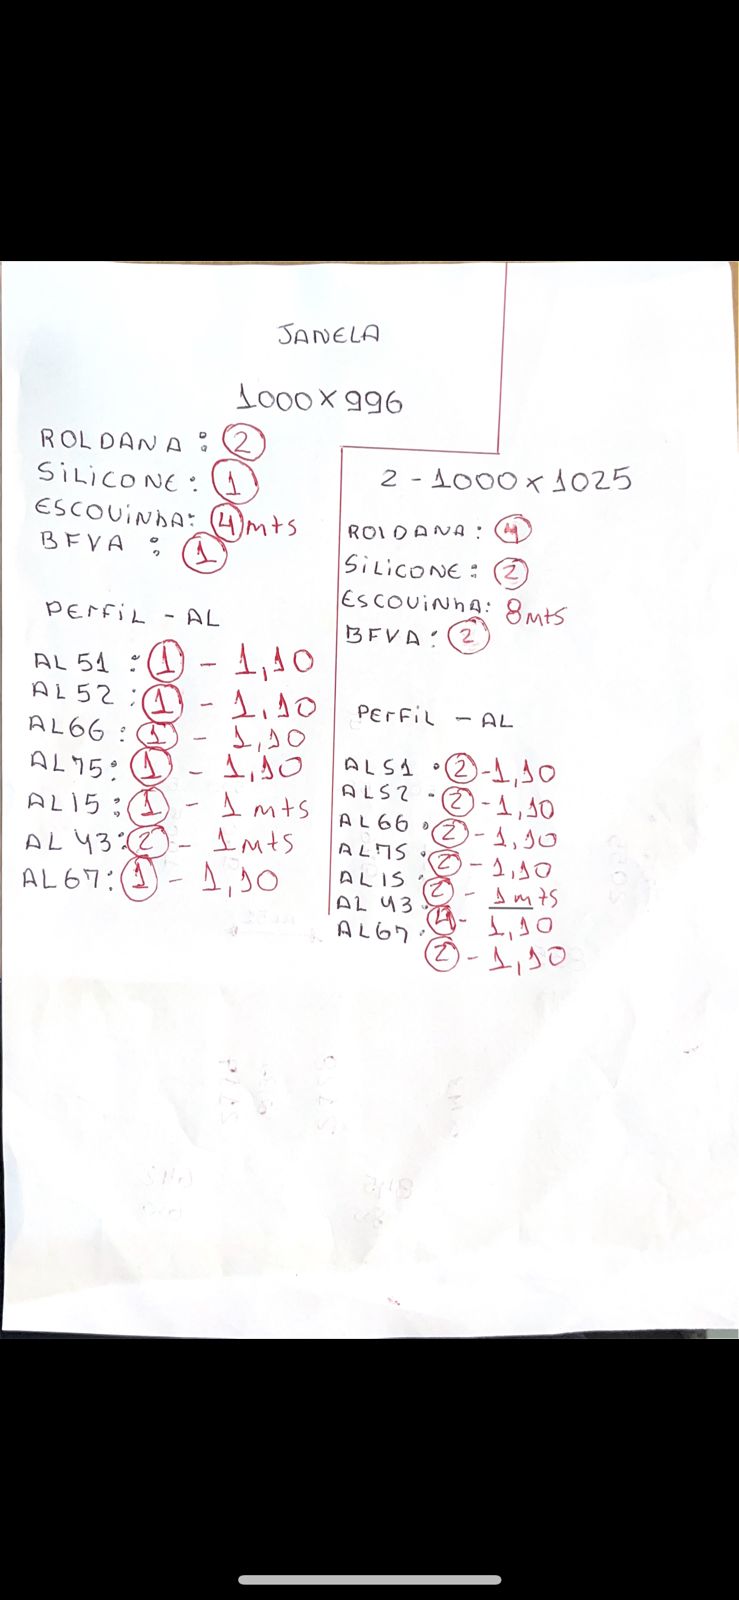 JANELA
1000 x 996
ROLDANA : 2
SILICONE : 1
ESCOUINhA: 4 mts
BFVA : 1
PERFIL - AL
AL 51 : 1 - 1,10
AL 52 : 1 - 1,10
AL66 : 1 - 1,10
AL75: 1 - 1,10
AL15 : 1 - 1 mts
AL 43: 2 - 1 mts
AL67: 1 - 1,10
2 - 1000 x 1025
ROLDANA: 4
SILICONE: 2
ESCOUINhA: 8 mts
BFVA: 2
PERFIL - AL
AL51 : 2 - 1,10
AL52 - 2 - 1,10
AL66 : 2 - 1,10
AL75 : 2 - 1,10
AL15 : 2 - 1 mts
AL 43 : 4 - 1,10
AL67 : 2 - 1,10